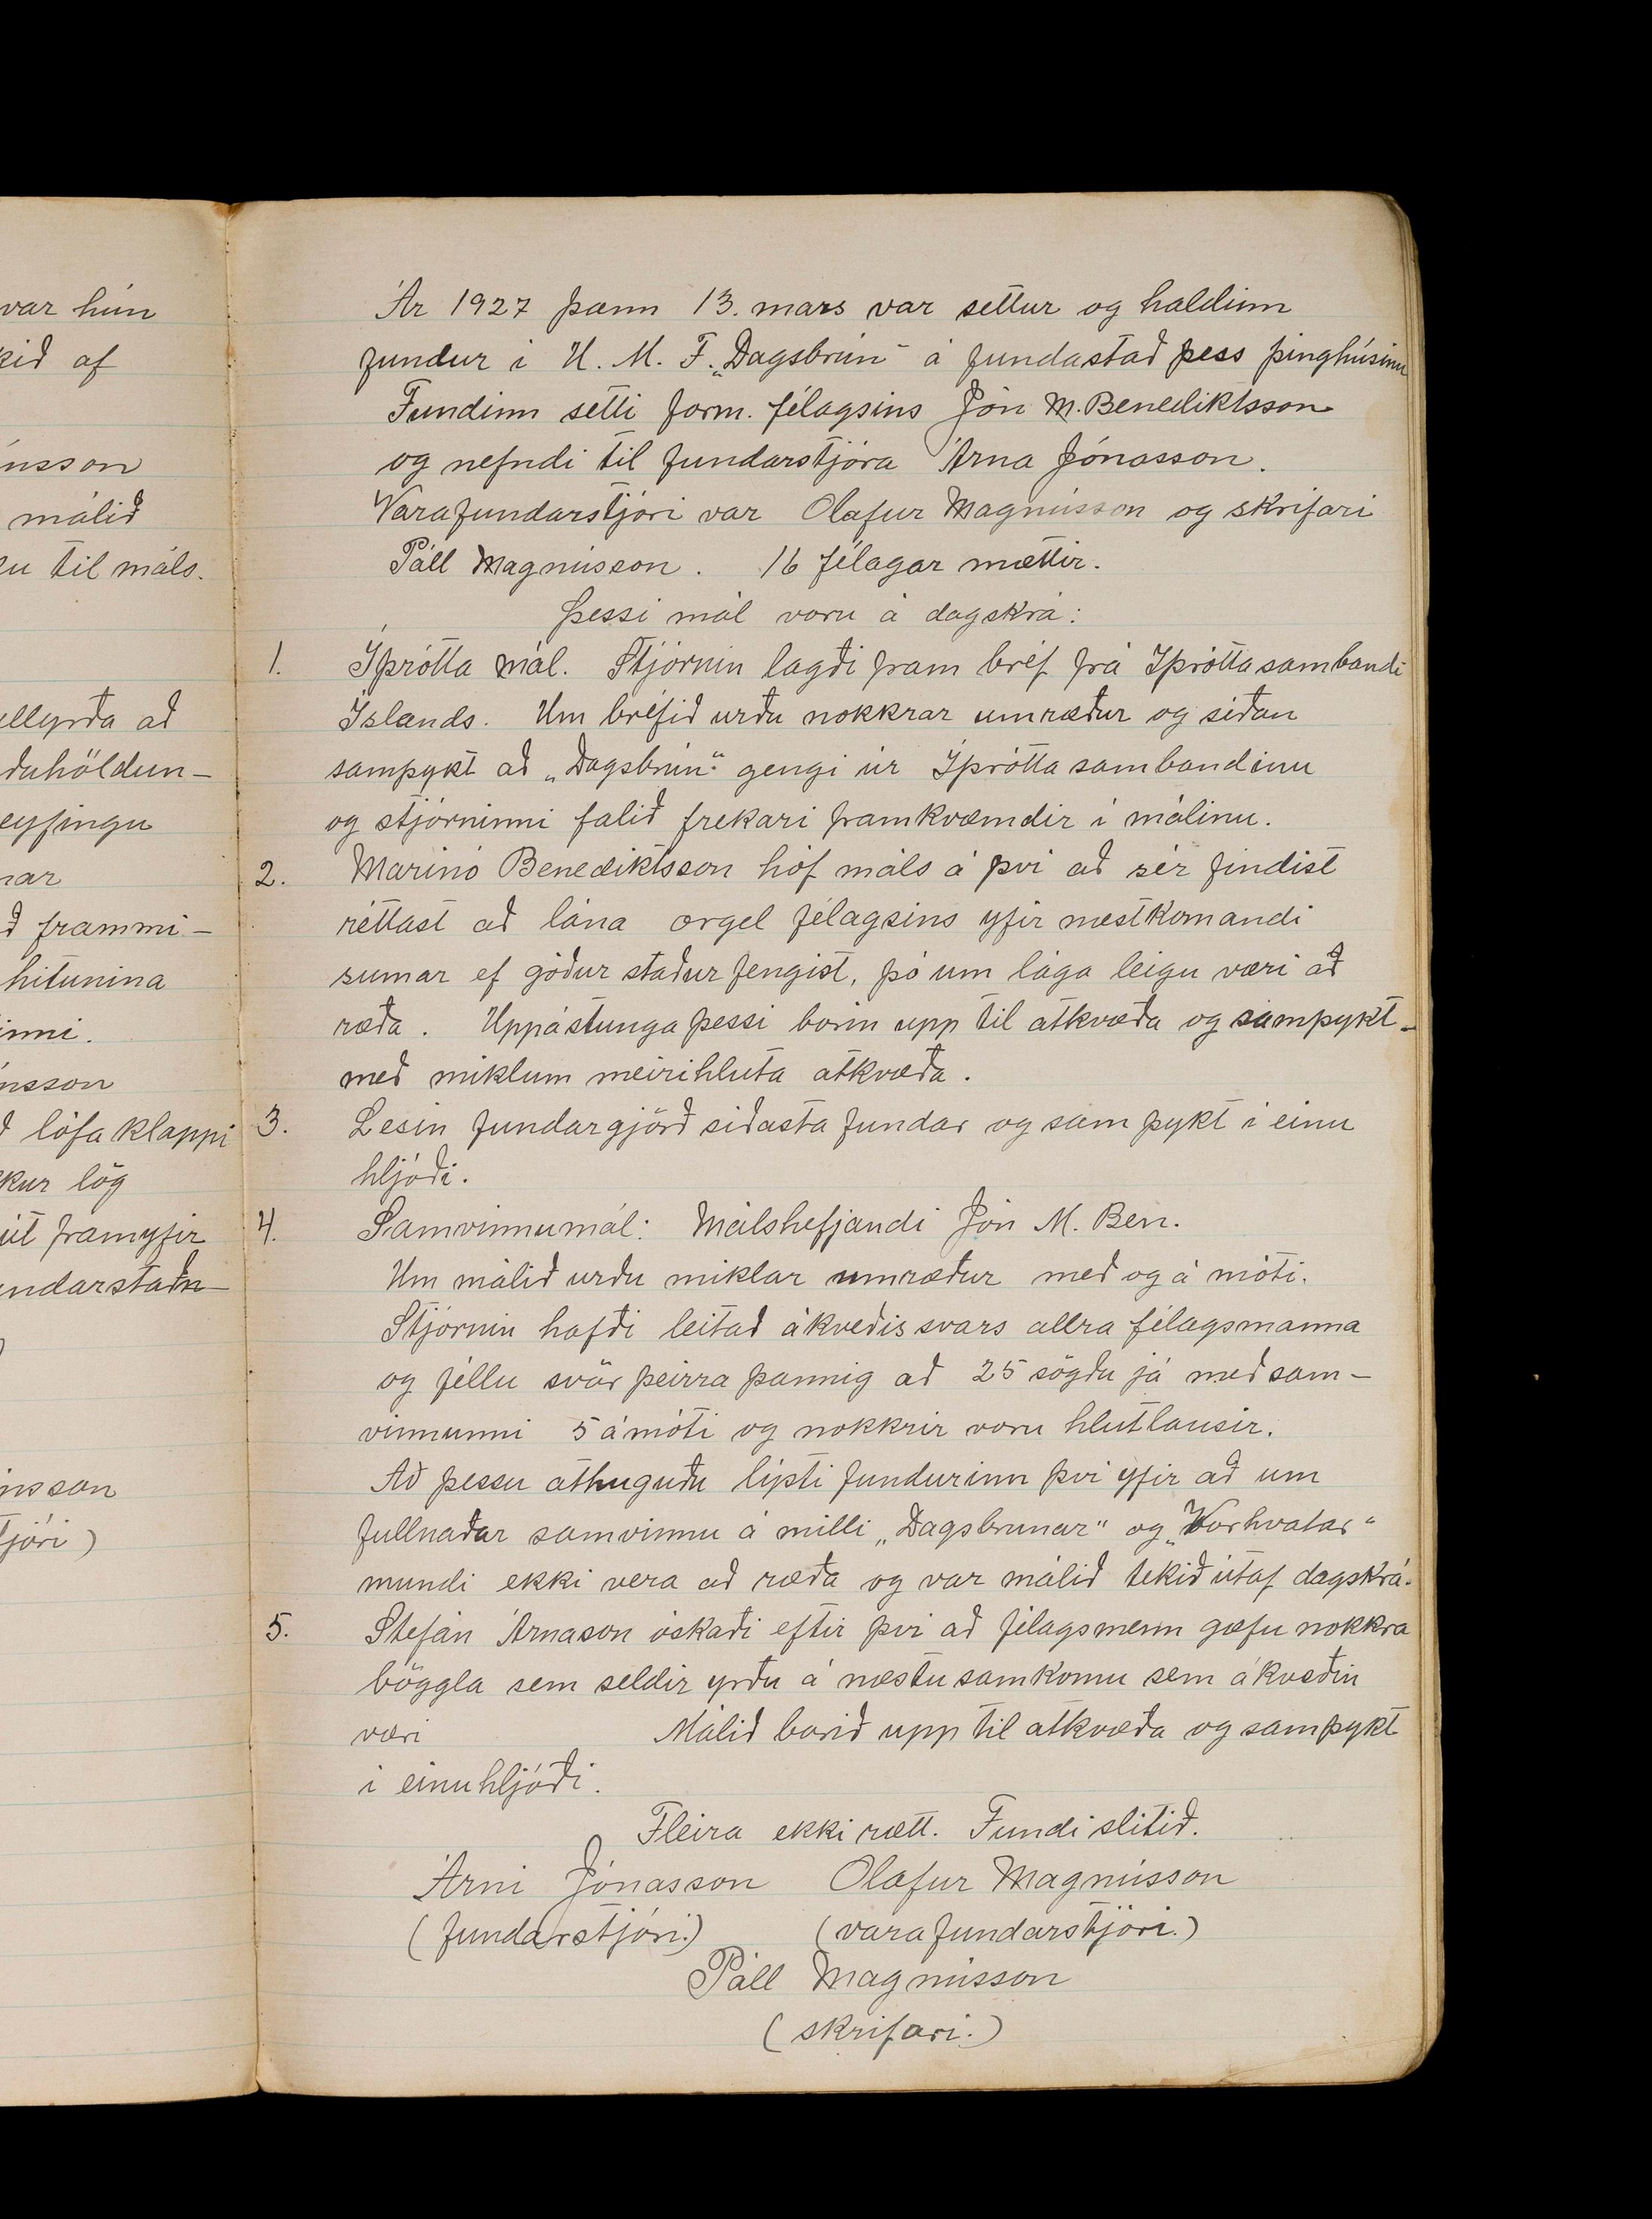 var hún
kið af
ússon
málið
ku til máls.
ullyrða að
ðuhöldun-
eyfingu
nar
ð frammi-
hitunina
inni.
ússon
ð lófaklappi
kkur lög
út framyfir
undarstaðn-
ússon
tjóri)
Ár 1927 þann 13. mars var settur og haldinn
fundur í U. M. F. „Dagsbrún“ á fundastað þess þinghúsinu
Fundinn setti form. félagsins Jón M. Benediktsson
og nefndi til fundarstjóra Árna Jónasson.
Varafundarstjóri var Olafur Magnússon og skrifari
Páll Magnússon. 16 félagar mættir.
Þessi mál voru á dagskrá:
1. Íþrótta mál. Stjórnin lagði fram bréf frá Íþróttasambandi
Íslands. Um bréfið urðu nokkrar umræður og síðan
samþykt að „Dagsbrún“ gengi úr Íþróttasambandinu
og stjórninni falið frekari framkvæmdir í málinu.
2. Marinó Benediktsson hóf máls á því að sér findist
réttast að lána orgel félagsins yfir næstkomandi
sumar ef góður staður fengist, þó um lága leigu væri að
ræða. Uppástunga þessi borin upp til atkvæða og samþykt-
með miklum meirihluta atkvæða.
3. Lesin fundargjörð síðasta fundar og samþykt í einu
hljóði.
4. Samvinnumál: Málshefjandi Jón M. Ben.
Um málið urðu miklar umræður með og á móti.
Stjórnin hafði leitað ákveðis svars allra félagsmanna
og féllu svör þeirra þannig að 25 sögðu já með sam-
vinnunni 5 á móti og nokkrir voru hlutlausir.
Að þessu athuguðu lípti fundurinn því yfir að um
fullnaðar samvinnu á milli „Dagsbrunar“ og „Vorhvatar“
mundi ekki vera að ræða og var málið tekið útaf dagskrá.
5. Stefán Árnason óskaði eftir því að félagsmenn gæfu nokkra
böggla sem seldir yrðu á næstu samkomu sem ákveðin
væri Málið borið upp til atkvæða og samþykt
í einuhljóði.
Fleira ekki rætt. Fundi slitið.
Árni Jónasson Olafur Magnússon
(fundarstjóri.) (varafundarstjóri.)
Páll Magnússon
(skrifari.)